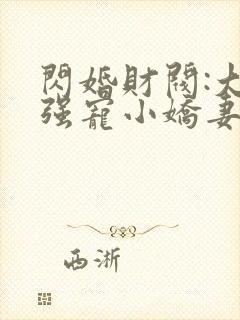 閃婚財閥:大
强寵小嬌妻
西淅